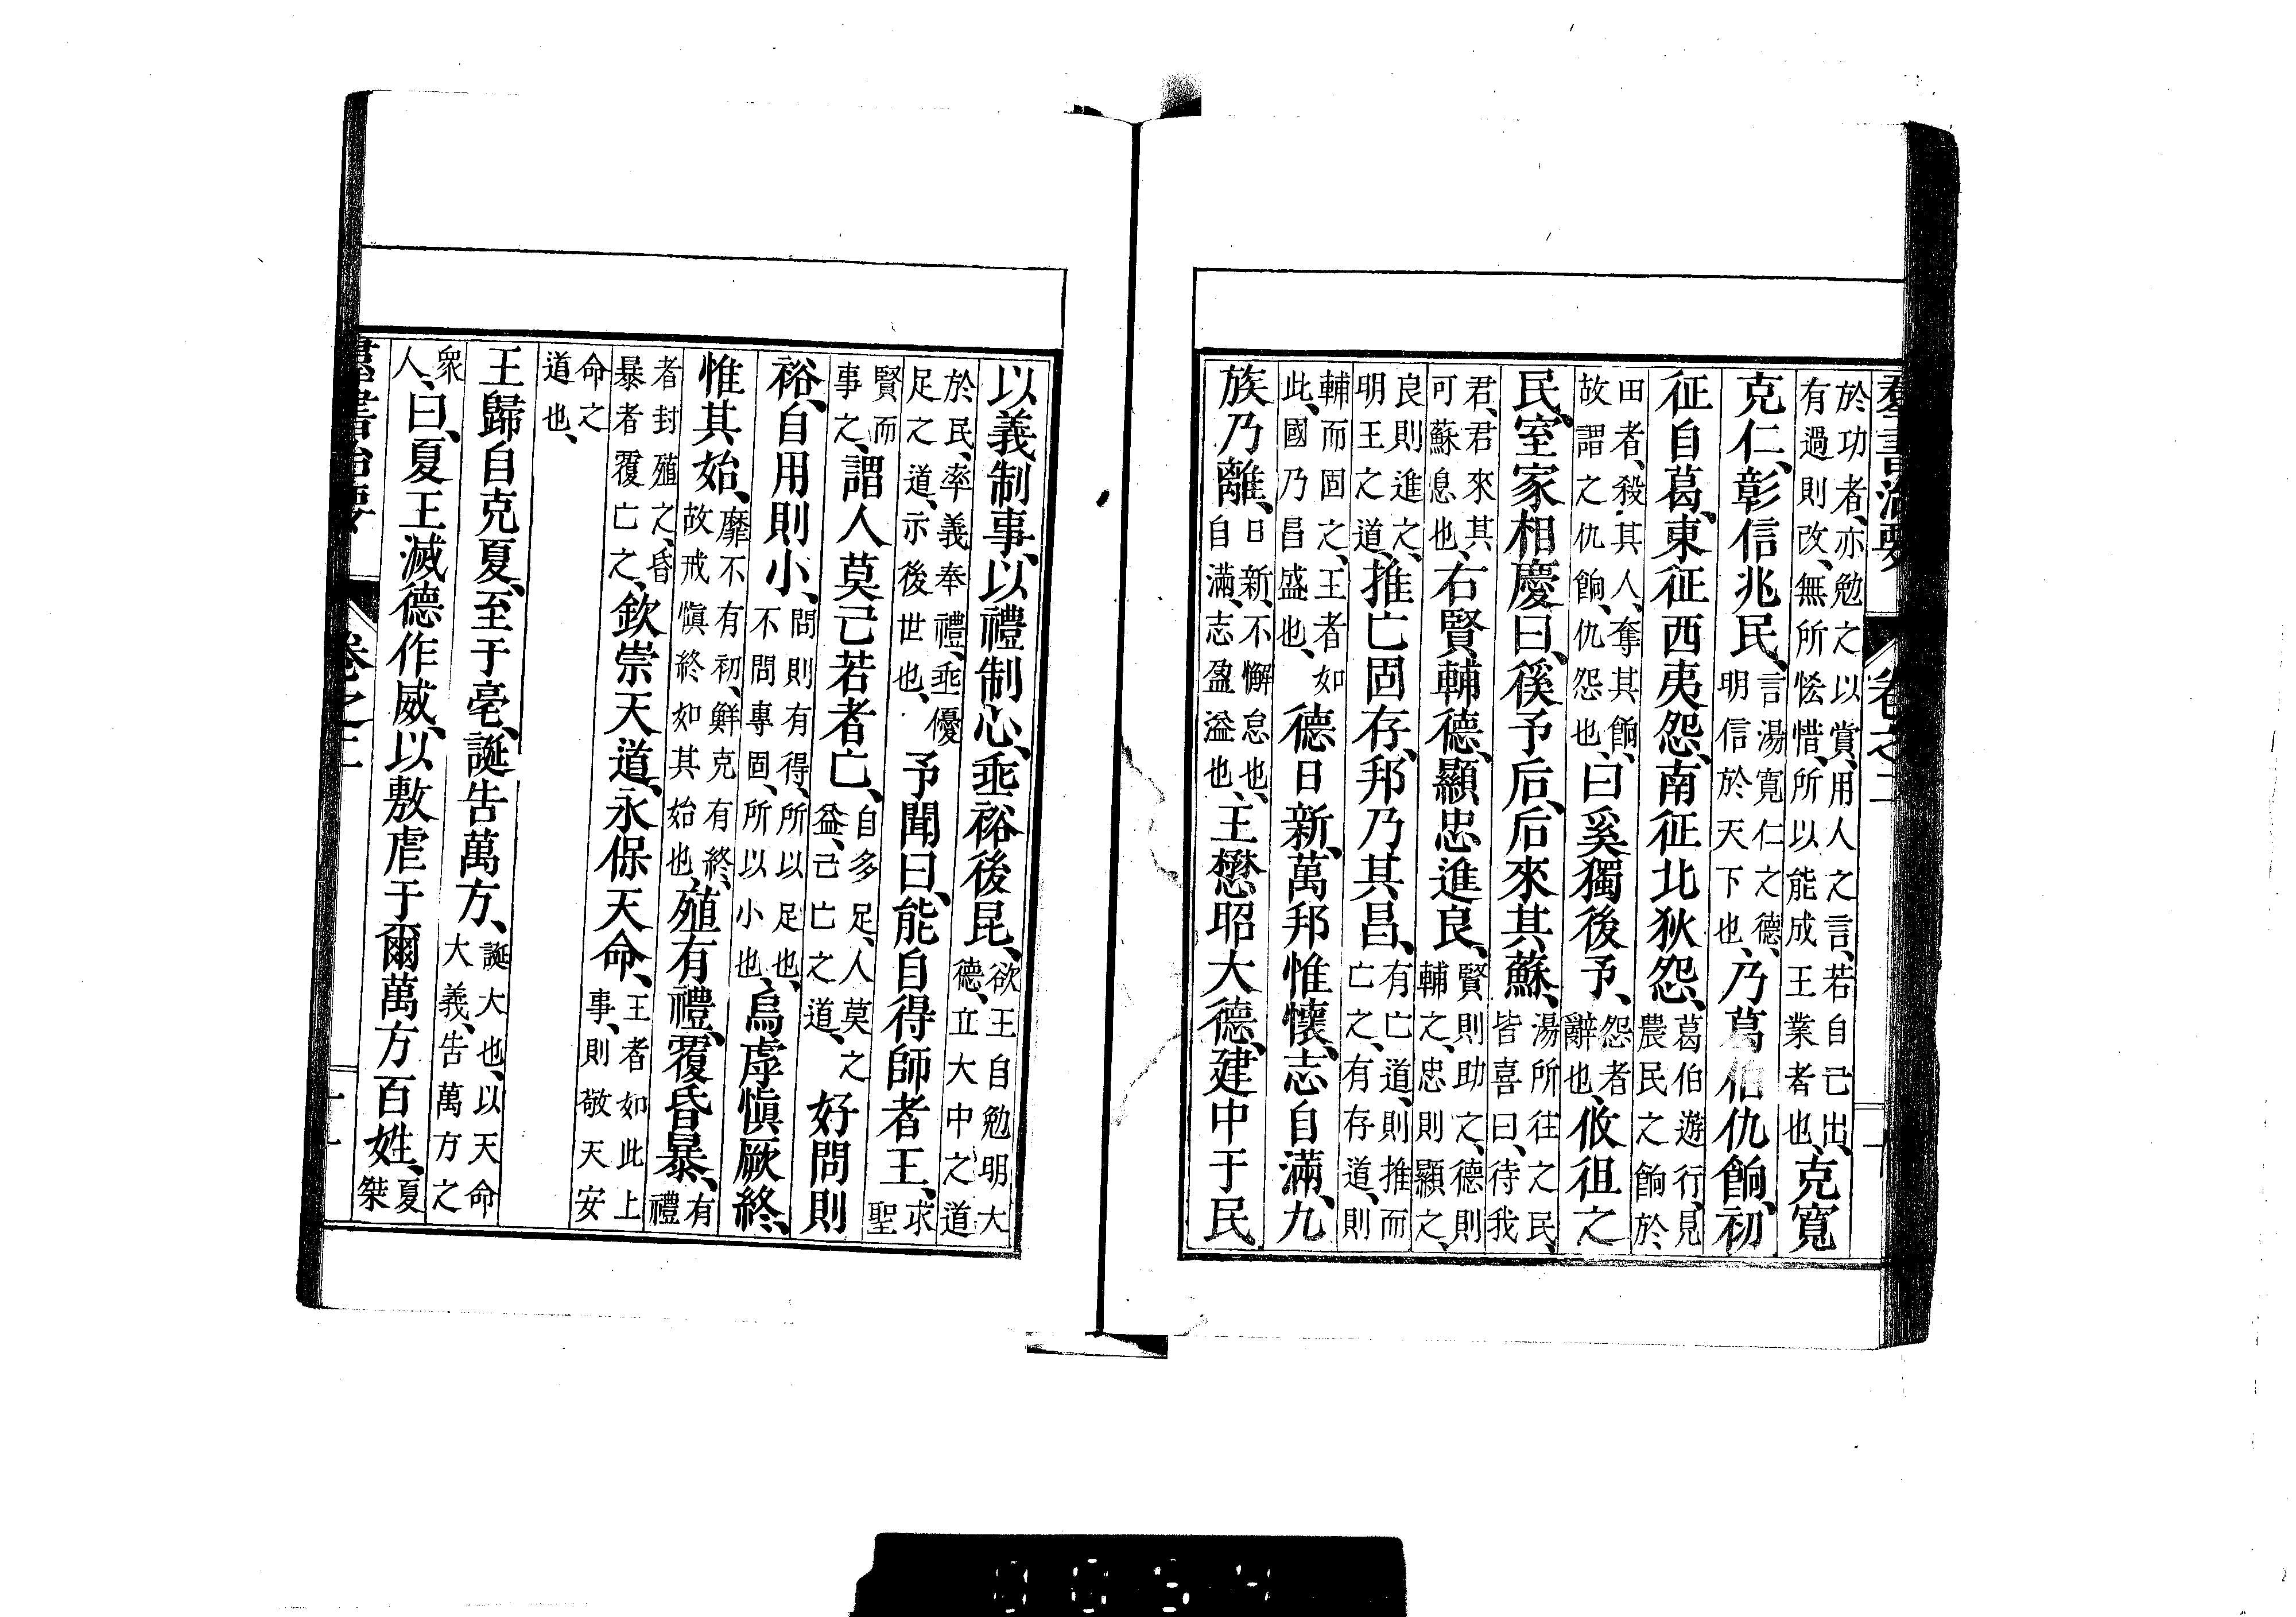 羣書治要 卷之二
於功者、亦勉之以賞、用人之言、若自己出、有過則改、無所恡惜、所以能成王業者也、克寬
克仁、彰信兆民、言湯寬仁之德、明信於天下也、乃葛伯仇餉、初
征自葛、東征西夷怨、南征北狄怨、葛伯遊行、見農民之餉於
田者、殺其人、奪其餉、故謂之仇餉、仇怨也、曰奚獨後予、怨者辭也、攸徂之
民、室家相慶曰、徯予后、后來其蘇、湯所往之民、皆喜曰、待我
君、君來其可蘇息也、右賢輔德、顯忠進良、賢則助之、德則輔之、忠則顯之、
良則進之、明王之道、推亡固存、邦乃其昌、有亡道、則推而亡之、有存道、則
輔而固之、王者如此、國乃昌盛也、德日新、萬邦惟懷、志自滿、九
族乃離、日新、不懈怠也、自滿、志盈溢也、王懋昭大德、建中于民
以義制事、以禮制心、垂裕後昆、欲王自勉明大德、立大中之道
於民、率義奉禮、垂優足之道、示後世也、予聞曰、能自得師者王、求聖
賢而事之、謂人莫己若者亡、自多足、人莫之益、己亡之道、好問則
裕、自用則小、問則有得、所以足也、不問專固、所以小也、烏虖愼厥終、
惟其始、靡不有初、鮮克有終、故戒愼終如其始也、殖有禮、覆昏暴、有禮
者封殖之、昏暴者覆亡之、欽崇天道、永保天命、王者如此上事、則敬天安
命之道也、
王歸自克夏、至于亳、誕告萬方、誕大也、以天命大義、告萬方之
衆人、曰、夏王滅德作威、以敷虐于爾萬方百姓、夏桀
羣書治要 卷之二 十一